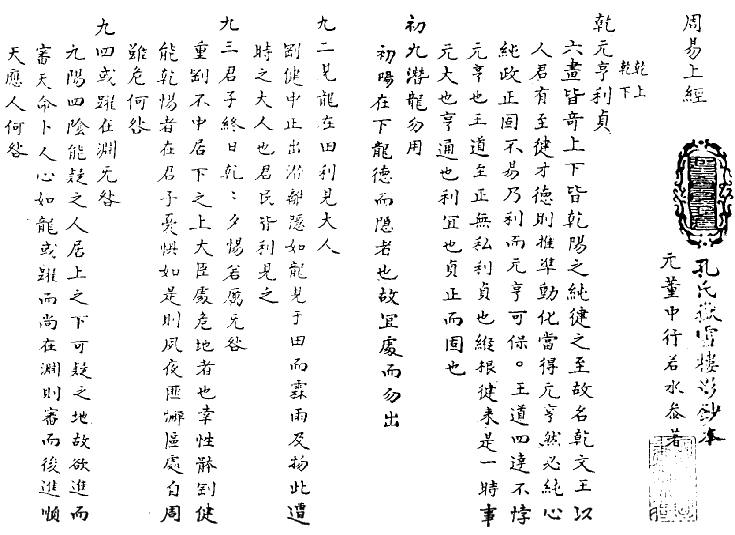 周易上經
孔氏嶽雪樓影鈔本
元董中行若水叅著
乾上
乾下
乾元亨利貞
六畫皆竒上下皆乾陽之純健之至故名乾文王以
人君有至健才德則推準動化當得元亨然必純心
純政正固不易乃利而元亨可保。王道四達不悖
元亨也王道至正無私利貞也縱根健来是一時事
元大也亨通也利冝也貞正而固也
初九潛龍勿用
初陽在下龍德而隠者也故冝處而勿出
九二見龍在田利見大人
剛健中正出潛離隠如龍見于田而霖雨及物此遭
時之大人也君民皆利見之
九三君子終日乾〻夕惕若厲无咎
重剛不中居下之上大臣處危地者也幸性體剛健
能乾惕者在君子憂惧如是則夙夜匪懈區處自周
雖危何咎
九四或躍在淵无咎
九陽四陰能疑之人居上之下可疑之地故欲進而
審天命卜人心如龍或躍而尚在淵則審而後進順
天應人何咎